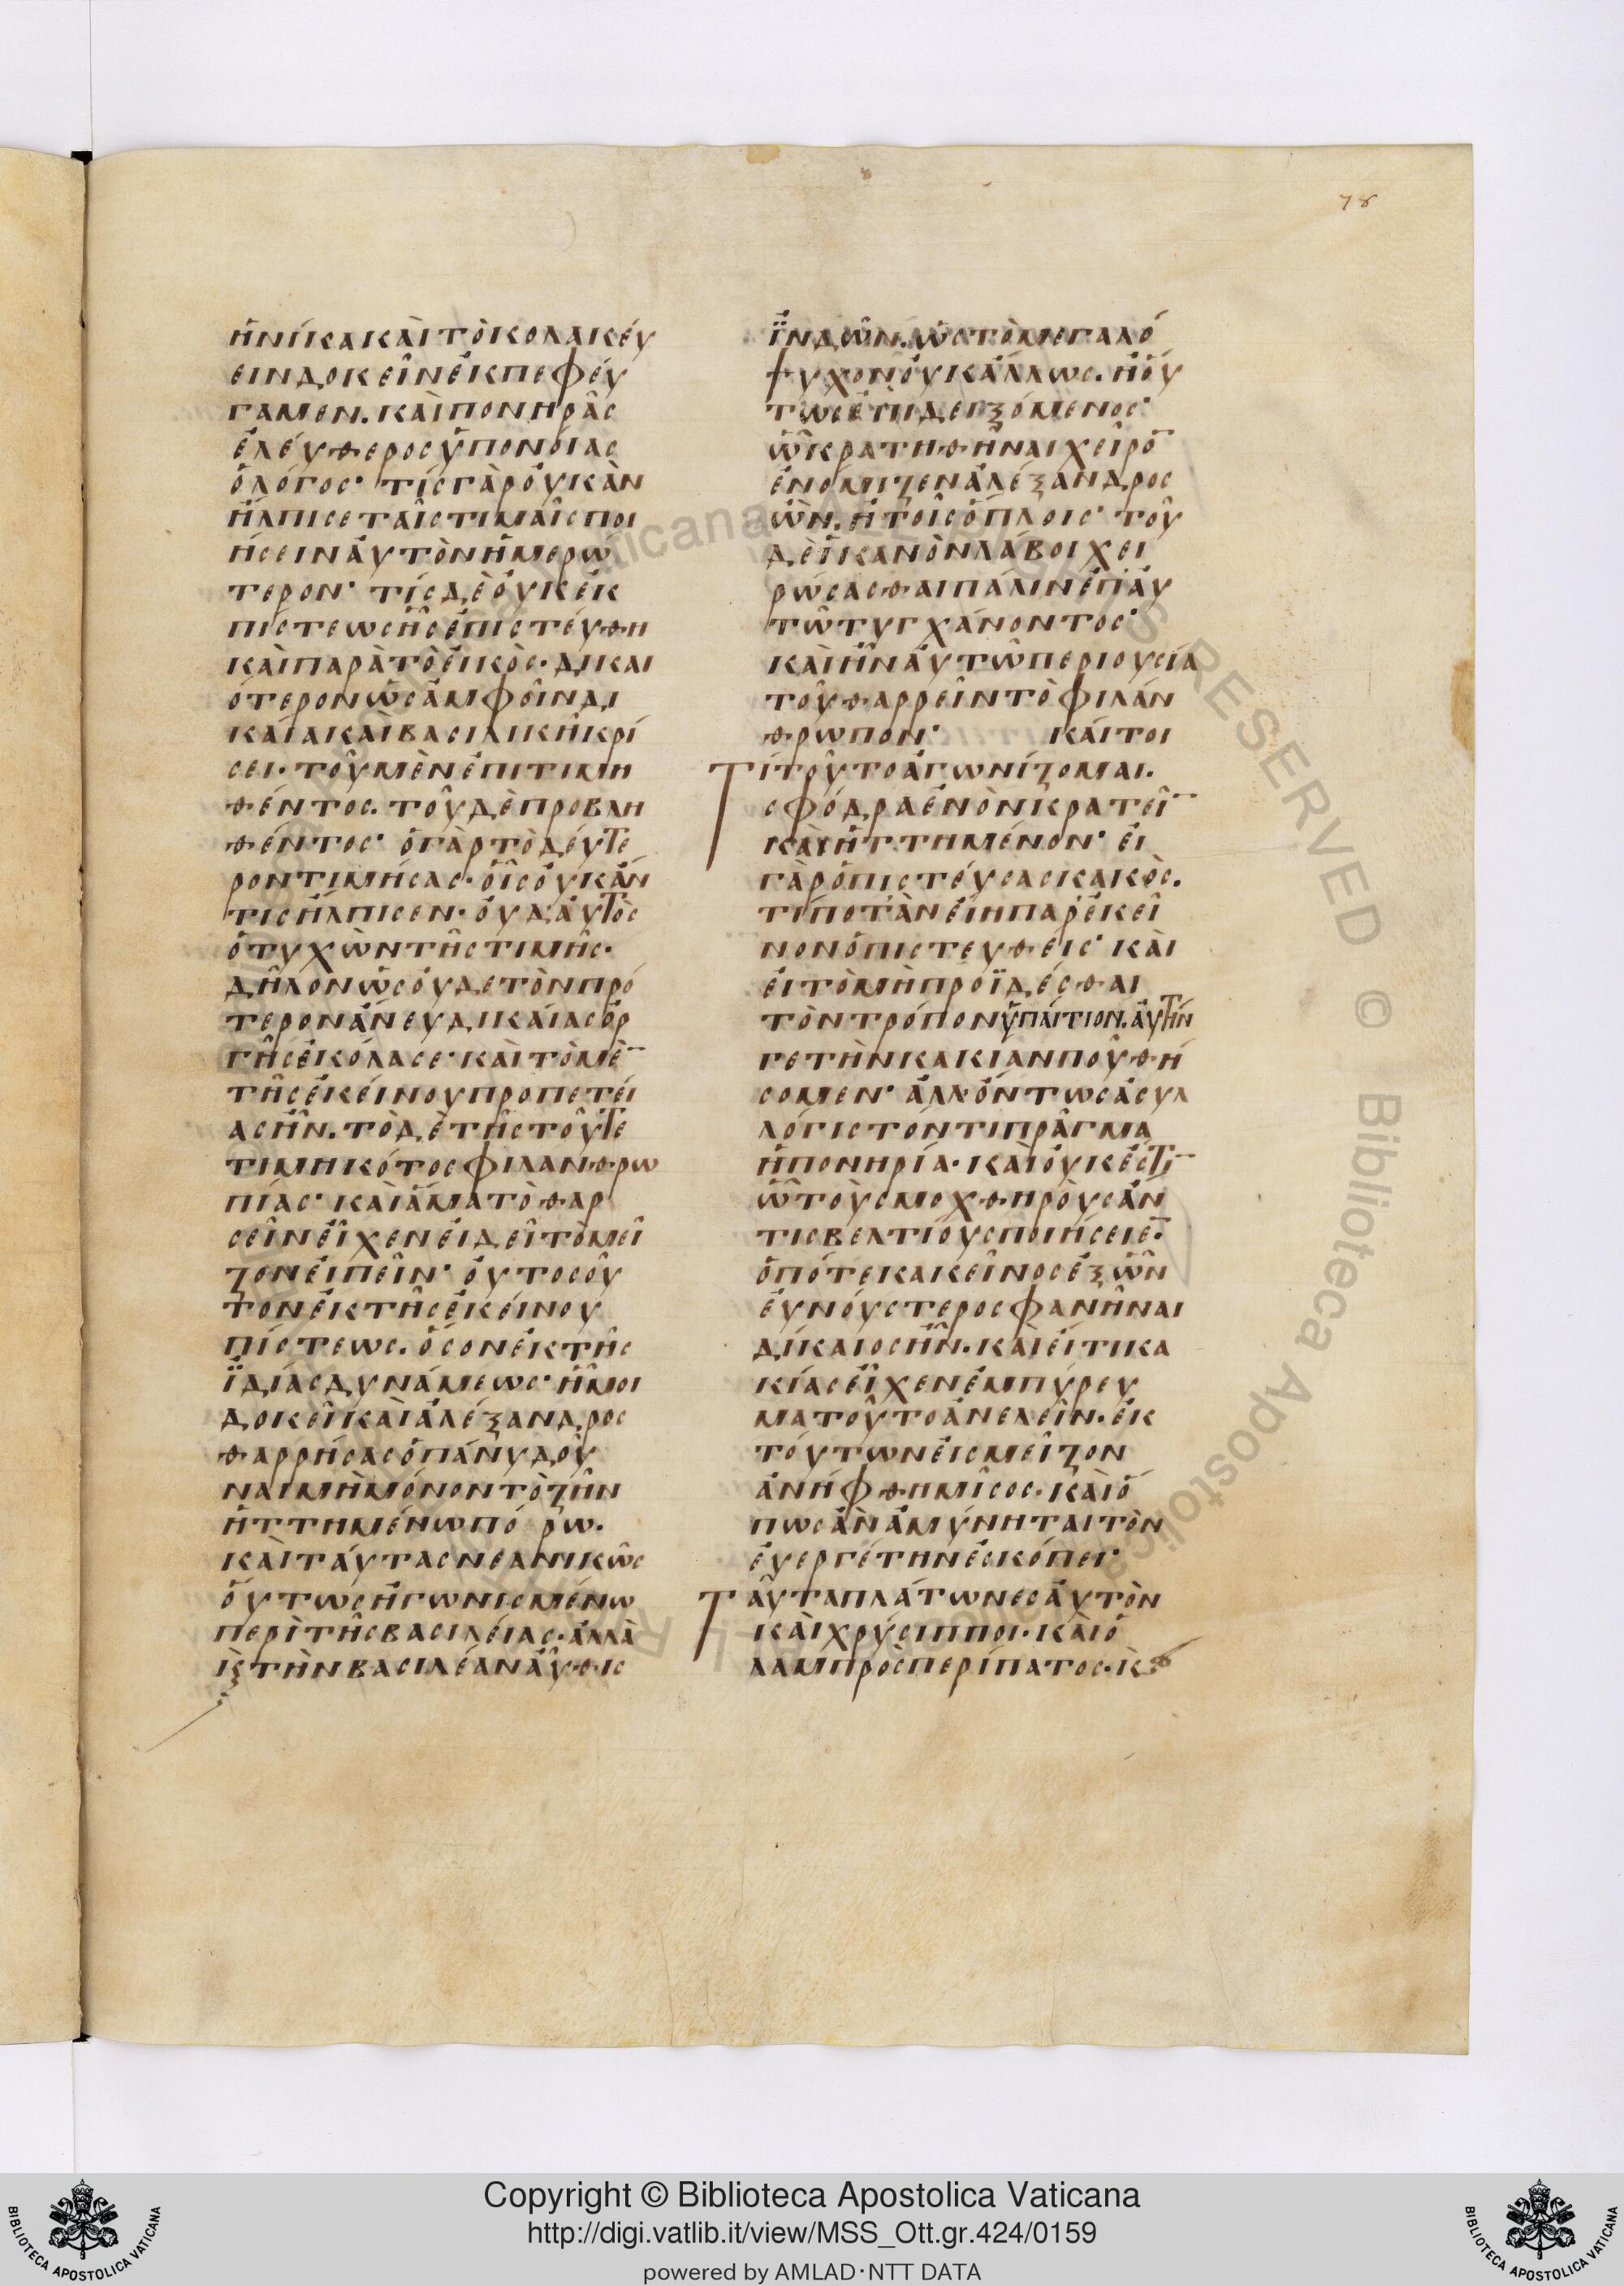 78
ἡνίκα καὶ τὸ κολακεύ
ειν δοκεῖν ἐκπεφεύ
γαμεν. καὶ πονηρᾶς
ἐλεύθερος ὑπονοίας
ὁ λόγος· τίς γὰρ οὐκ ἂν
ἤλπισε ταῖς τιμαῖς ποι
ήσειν αὐτὸν ἡμερώ
τερον· τίς δὲ οὐκ ἐκ
πίστεως ἧς ἐπιστεύθη
καὶ παρὰ τὸ εἰκὸς· δικαι
ότερον ὡς ἀμφοῖν δι
καία καὶ βασιλικῆ κρί
σει· τοῦ μὲν ἐπιτιμη
θέντος. τοῦ δὲ προβλη
θέντος· ὁ γὰρ τὸ δεύτε
ρον τιμήσας· οἷς οὐκ ἄν
τις ἤλπισεν· οὐδ' αὐτὸς
ὁ τυχὼν τῆς τιμῆς·
δῆλον ὡς οὐδε τὸν πρό
τερον ἄνευ δικαίας ὀρ
γῆς ἐκόλασε· καὶ τὸ μὲ̅
τῆς ἐκείνου προπετεί
ας ἦν. τὸ δὲ τῆς τοῦ τε
τιμηκότος φιλανθρω
πίας· καὶ ἅμα τὸ θαρ
σεῖν εἶχεν εἰ δεῖ τὸ μεῖ
ζον εἰπεῖν· οὐ τοσοῦ
τον ἐκ τῆς ἐκείνου
πίστεως. ὅσον ἐκ τῆς
ϊδίας δυνάμεως· ἦ μοι
δοκεῖ καὶ ἀλέξανδρος
θαρρήσας ὁ πάνυ δοὺ
ναι μὴ μόνον τὸ ζῆν
ἡττημένω πόρω.
καὶ ταύτας νεανικῶς
οὕτως ἠγωνισμένω
περὶ τῆς βασιλείας· ἀλλὰ
κ τὴν βασιλέαν αὖθις
ϊνδῶν. ὡς τὸ μεγαλό
ψυχον οὐκ ἄλλως. ἢ οὕ
τως ἐπιδειξόμενος·
ὧ κρατηθῆναι χεῖρο̅
ἐνόμιζεν ἀλέξανδρος
ὢν. ἢ τοῖς ὅπλοις· τοῦ
δὲ ϊκανὸν λάβοι χει
ρώσασθαι πάλιν ἐπ' αὐ
τῶ τυγχάνοντος·
καὶ ἦν αὐτῶ περιουσία
τοῦ θαρρεῖν τὸ φιλάν
θρωπον· καίτοι
Τί τοῦτο ἀγωνίζομαι.
σφόδρα ἐνὸν κρατεῖ̅
καὶ ἡττημένον· εἰ
γὰρ ὁ πιστεύσας κακὸς.
τί ποτ' ἂν εἴη παρ' ἐκεῖ
νον ὁ πιστευθείς· καὶ
εἰ τὸ μὴ προϊδέσθαι
τὸν τρόπον ὑπαίτιον. αὐτήν
γε τὴν κακίαν ποῦ θή
σομεν· ἀλλ' ὄντως ἀσυλ
λόγιστόν τι πρᾶγμα
ἡ πονηρία· καὶ οὐκ ἔστι̅
ὧ τοὺς μοχθηροὺς ἄν
τις βελτίους ποιήσειε̅·
ὁπότε κακεῖνος ἐξ ὧν
εὐνούστερος φανῆναι
δίκαιος ἦν. καὶ εἴ τι κα
κίας εἶχεν ἐμπύρευ
μα τοῦτο ἀνελεῖν. ἐκ
τούτων εἰς μεῖζον
ἀνήφθη μῖσος· καὶ ὅ
πως ἂν ἀμύνηται τὸν
εὐεργέτην ἐσκόπει·
Ταῦτα πλάτωνες αὐτὸν
καὶ χρύσιπποι· καὶ ὁ
λαμπρὸς περίπατος· κ
Copyright © Biblioteca Apostolica Vaticana
http://digi.vatlib.it/view/MSS_Ott.gr.424/0159
powered by AMLAD·NTT DATA
BIBLIOTECA APOSTOLICA VATICANA
BIBLIOTECA APOSTOLICA VATICANA